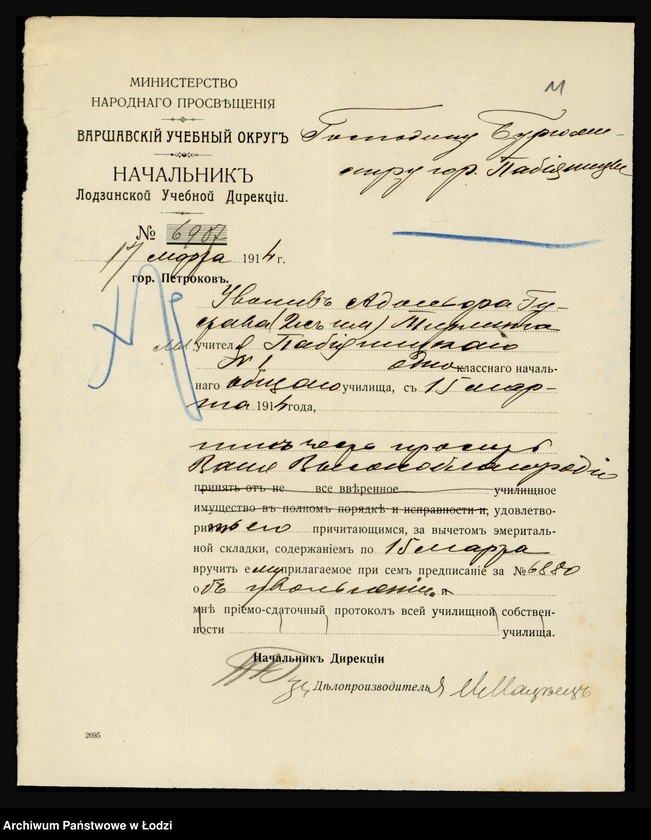 М
МИНИСТЕРСТВО
НАРОДНАГО ПРОСВѢЩЕНІЯ
ВАРШАВСКІЙ УЧЕБНЫЙ ОКРУГЪ
Господину Бургоми-
стру гор. Пабіяницы
НАЧАЛЬНИКЪ
Лодзинской Учебной Дирекціи.
№ 6907
17 марта 1914 г.
гор. Петроковъ.
Уволивъ Адольфа Гу-
става (2хъ им)
мл. учителя Пабіяницкаго
№ 1 однокласснаго началь-
наго общаго училища, съ 15 мар-
та 1914 года,
честь просить
Ваше Высокоблагородіе
принять отъ не все ввѣренное училищное
имущество въ полномъ порядкѣ и исправности и, удовлетво-
ривъ его причитающимся, за вычетомъ эмериталь-
ной складки, содержаніемъ по 15 марта
вручить ему прилагаемое при семъ предписаніе за № 6880
объ увольненіи. и
мнѣ пріемо-сдаточный протоколъ всей училищной собствен-
ности училища.
Начальникъ Дирекціи
Дѣлопроизводитель
2695
Archiwum Państwowe w Łodzi